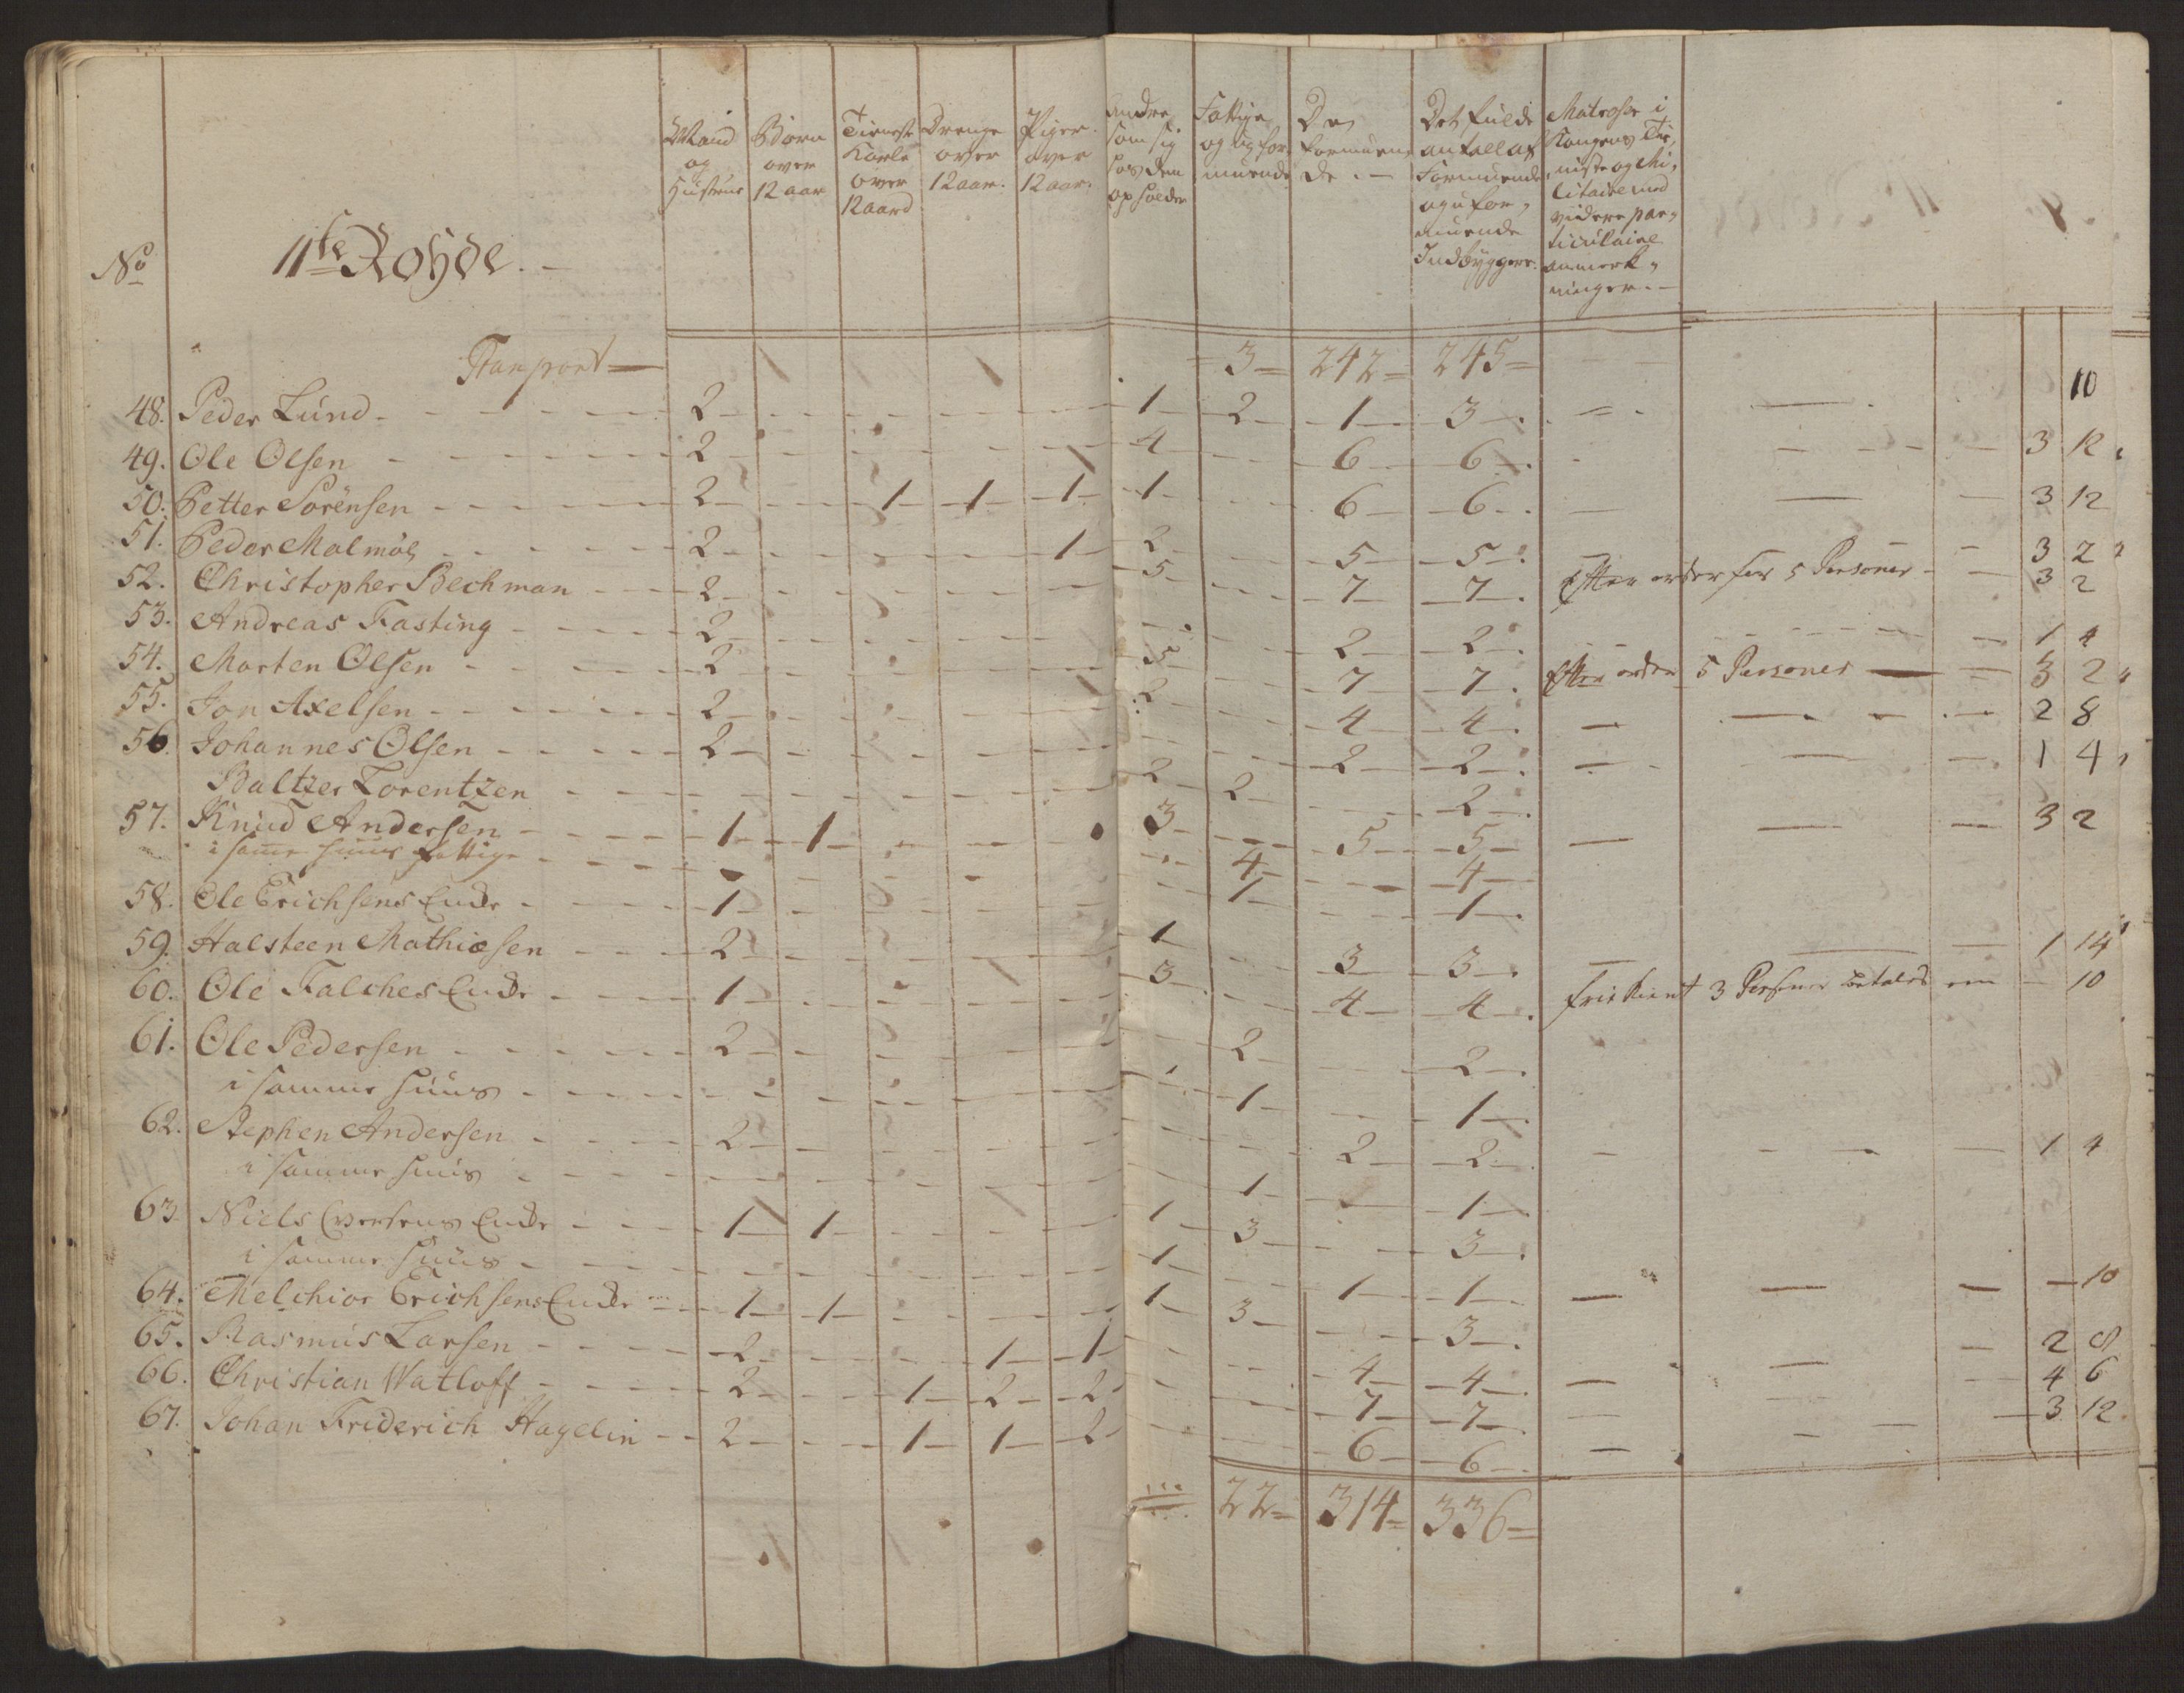 No
11te Rohde.
Mand og Hustrue
Börn over 12 aar
Tieneste Karle over 12 aar
Drenge over 12 aar.
Piger over 12 aar.
Andre som sig hos dem opholder
Fattige og uformuende
De formuende
Det fulde antall af Formuende og uformuende Indbyggere.
Matroser i Kongens Tieniste og Militaire med videre particulaire anmerkninger.
Transport 3 242 245
10
48. Peder Lund 2 1 2 1 3
49. Ole Olsen 2 4 6 6 3 12
50. Petter Sörensen 2 1 1 1 1 6 6 3 12
51. Peder Malmöe 2 1 2 5 5 3 2
52. Christopher Bechman 2 5 7 7 Efter order for 5 Personer 3 2
53. Andreas Fasting 2 2 2 1 4
54. Morten Olsen 2 5 7 7 Efter order 5 Personer 3 2
55. Jon Axelsen 2 2 4 4 2 8
56. Johannes Olsen 2 2 2 1 4
Baltzer Lorentzen 2 2 2
57. Knud Andersen 1 1 3 5 5 3 2
i samme huus fattige 4 4
58. Ole Erichsens Encke 1 1 1
59. Halsteen Mathiæsen 2 1 3 3 1 14
60. Ole Falches Encke 1 3 4 4 3 Personer betaler 10
61. Ole Pedersen 2 2 2
i samme huus 1 1
62. Stephen Andersen 2 2 2 1 4
i samme huus 1 1
63. Niels Encke 1 1 1 3 3
i samme huus 1 1 1 10
64. Melchior Erichsens Encke 1 1 1 3 3
65. Rasmus Larsen 2 1 1 4 4 2 8
66. Christian Watloff 2 1 2 2 7 7 4 6
67. Johan Friderich Hagelin 2 1 1 2 6 6 3 12
22 314 336